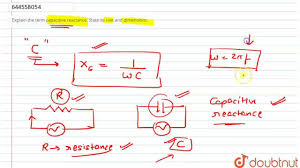 644558054
Explain the term capacitive reactance. State its unit and dimensions.
"C"
X_C = 1/ωC
ω = 2πf
R
Capacitive
reactance
R → resistance
C
doubtnut